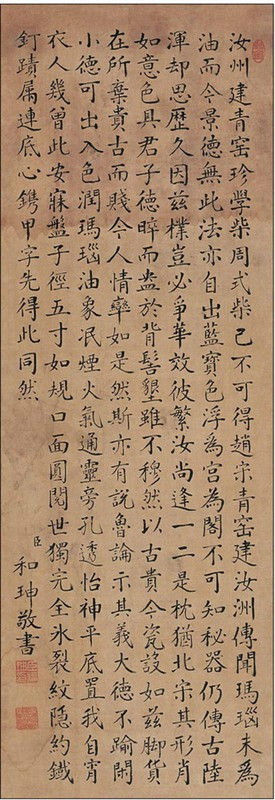 汝州建青窑珍學柴周式柴已不可得趙宋青窑建汝洲傳聞瑪瑙末為
油而今景德無此法亦自出藍寶色浮為宮為閣不可知秘器仍傳古陸
渾却思歷久因茲樸豈必爭華效彼繁汝尚逢一二是枕猶北宗其形肖
如意色具君子德晬而盎於背髻墾雖不穆然以古貴今瓷設如茲脚貨
在所棄貴古而賤今人情率如是然斯亦有說魯論示其義大德不踰閑
小德可出入色潤瑪瑙油象泯煙火氣通靈旁孔透怡神平底置我自宵
衣人幾曾此安寐盤子徑五寸如規口面圓閱世獨完全氷裂紋隱約鐵
釘蹟属連底心鐫甲字先得此同然
臣和珅敬書